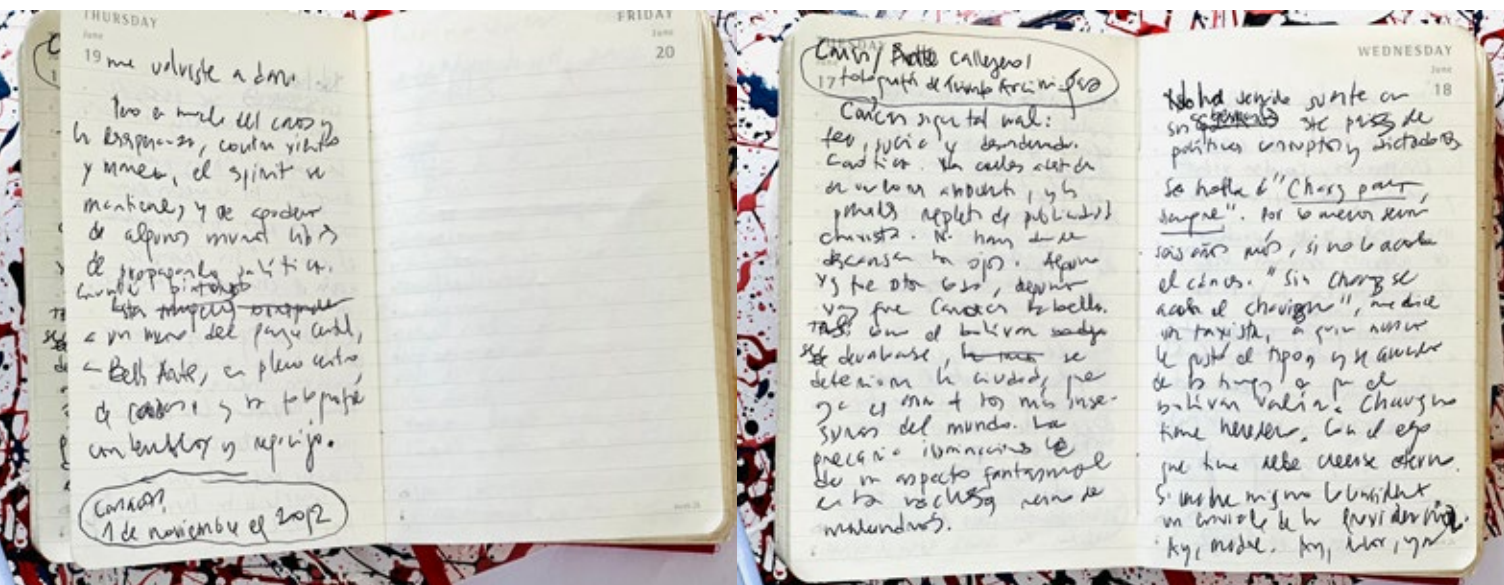 THURSDAY
June
19 me volviste a dar.
Pero en medio del caos y
la desesperanza, contra viento
y marea, el spirit se
mantiene, y se apodera
de algunos muros libres
de propaganda política.
pintando
a un muro del parque central,
en Bellas Artes, en pleno centro
de Caracas, y la fotografié
con temblor y regocijo.
Caracas,
1 de noviembre 2012
FRIDAY
June
20
callejero
17 fotografía de
Caracas sigue tal mal:
feo, sucia y desordenada.
Caótica.
de un ambiente, y las
paredes repletas de publicidad
chavista. No hay donde
descansar los ojos. Alguna
vez fue otra cosa, alguna
vez fue Caracas la bella.
como el bolívar
devaluarse, se
deteriora la ciudad, que
ya es una de las más inse-
guras del mundo. La
precaria iluminación le
da un aspecto fantasmal
en la noche,
malandros.
WEDNESDAY
June
18
No ha tenido suerte con
sus este país de
políticos corruptos y dictadores
Se habla de "Chavez para
siempre". Por lo menos serán
seis años más, si no lo acaba
el cáncer. "Sin Chavez se
acaba el chavismo", me dice
un taxista, a quien nunca
le gustó el tipo, y se acuerda
de los tiempos en que el
bolívar valía. Chavez no
tiene heredero. Con el ego
que tiene debe creerse eterno.
Si
un enviado de la providencia.
Ay, madre. Ay,